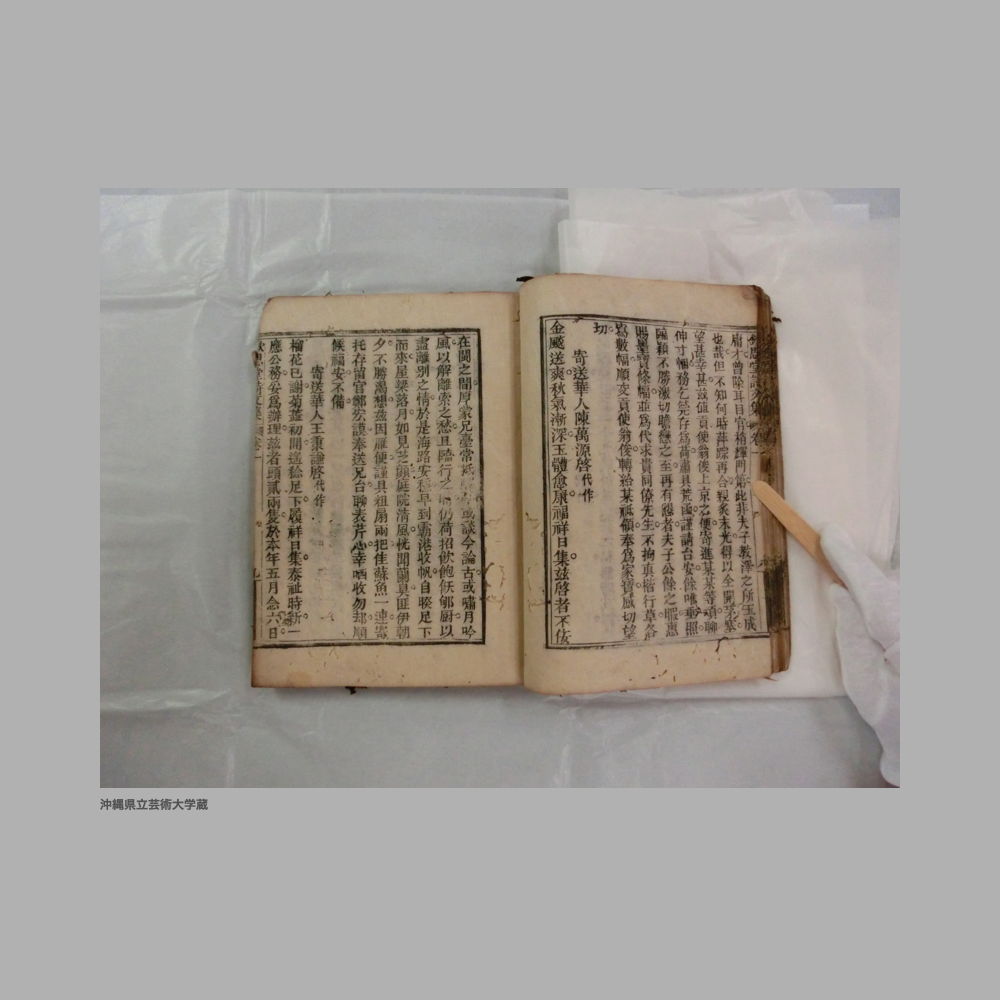 庸才曾除耳目官柏輝門第此非夫子教澤之所玉成
也哉但不知何時萍踪再合親炙末光得以全開茅塞
望甚幸甚茲值貢使翁俊上京之便寄進某某等頑聊
伸寸幅務乞莞存爲荷肅具荒函謹請台安餘唯垂照
臨穎不勝激切瞻戀之至再有懇者夫子公餘之暇惠
賜墨寶條幅並爲代求貴同僚先生不拘真楷行草各
爲數幅順交貢使翁俊轉給某祗領奉爲家寶感切望
切
寄送華人陳萬源啓代作
金颷送爽秋氣漸深玉體愈康福祥日集茲啓者不佞
在閩之間厚蒙兄臺常或談今論古或嘯月吟
風以解離索之愁且臨行之仍荷招飲飽飫郇厨以
盡離別之情於是海路安穩早到霸港收帆自暌足下
而來屋梁落月如見芝顔庭院清風恍聞蘭臭匪伊朝
夕不勝渴想茲因雁便謹具粗扇兩把佳蘇魚一連寄
托存留官鄭宏謨奉送兄台聊表芹心幸哂收勿却順
候福安不備
寄送華人王秉謙啓代作
榴花已謝菊蕋初開遙稔足下履祥日集泰祉時新一
應公務妥爲辦理茲者頭貳兩隻於本年五月念六日
沖縄県立芸術大学蔵